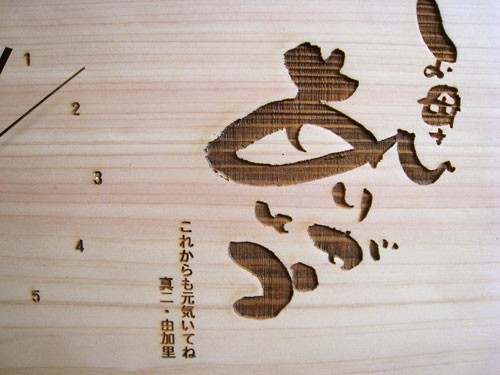 お母さん
ありがとう
これからも元気いてね
真二・由加里
1
2
3
4
5